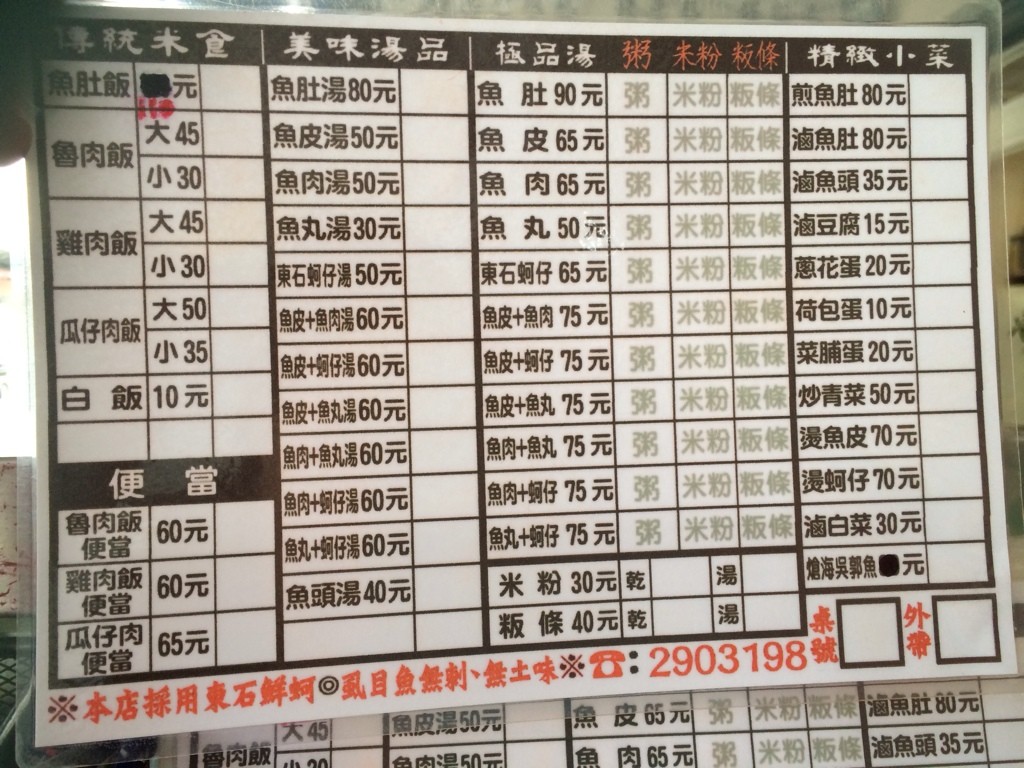 傳統米食 美味湯品 極品湯 粥 米粉 粄條 精緻小菜
魚肚飯 元 110 魚肚湯80元 魚 肚 90元 粥 米粉 粄條 煎魚肚80元
魯肉飯 大45 魚皮湯50元 魚 皮 65元 粥 米粉 粄條 滷魚肚80元
小30 魚肉湯50元 魚 肉 65元 粥 米粉 粄條 滷魚頭35元
雞肉飯 大45 魚丸湯30元 魚 丸 50元 粥 米粉 粄條 滷豆腐15元
小30 東石蚵仔湯50元 東石蚵仔 65元 粥 米粉 粄條 蔥花蛋20元
瓜仔肉飯 大50 魚皮+魚肉湯60元 魚皮+魚肉 75元 粥 米粉 粄條 荷包蛋10元
小35 魚皮+蚵仔湯60元 魚皮+蚵仔 75元 粥 米粉 粄條 菜脯蛋20元
白飯 10元 魚皮+魚丸湯60元 魚皮+魚丸 75元 粥 米粉 粄條 炒青菜50元
魚肉+魚丸湯60元 魚肉+魚丸 75元 粥 米粉 粄條 燙魚皮70元
便當 魚肉+蚵仔湯60元 魚肉+蚵仔 75元 粥 米粉 粄條 燙蚵仔70元
魯肉飯便當 60元 魚丸+蚵仔湯60元 魚丸+蚵仔 75元 粥 米粉 粄條 滷白菜30元
雞肉飯便當 60元 魚頭湯40元 米粉30元 乾 湯 熗海吳郭魚 元
瓜仔肉便當 65元 粄條40元 乾 湯 桌號 外帶
※本店採用東石鮮蚵◎虱目魚無刺、無土味※☎:2903198
大45 魚皮湯50元 魚 皮 65元 粥 米粉 粄條 滷魚肚80元
魯肉飯 小30 魚肉湯50元 魚 肉 65元 粥 米粉 粄條 滷魚頭35元